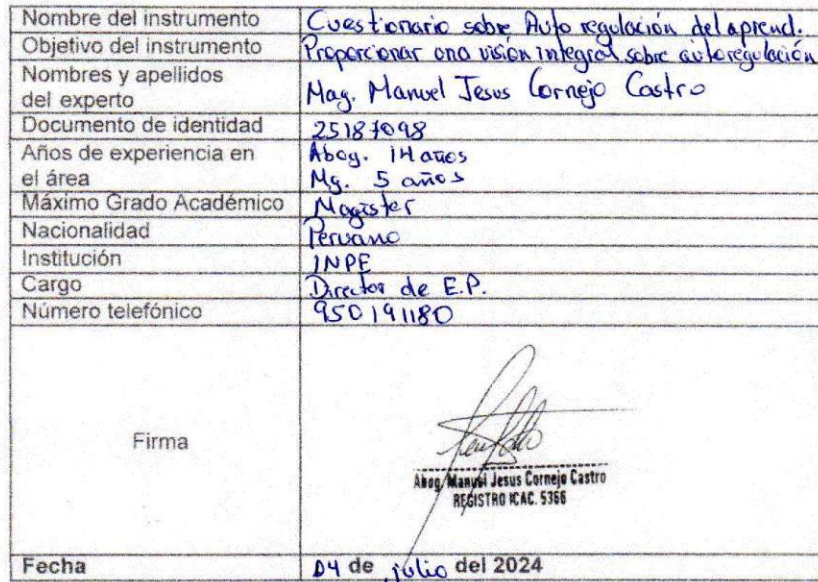 Nombre del instrumento Cuestionario sobre Auto regulación del aprend.
Objetivo del instrumento Proporcionar una visión integral sobre autoregulación
Nombres y apellidos
del experto Mag. Manuel Jesus Cornejo Castro
Documento de identidad
Años de experiencia en Abog. 14 años
el área Mg. 5 años
Máximo Grado Académico Magister
Nacionalidad Peruano
Institución INPE
Cargo Director de E.P.
Número telefónico 950191180
Firma
Abog. Manuel Jesus Cornejo Castro
REGISTRO ICAC. 5366
Fecha 04 de julio del 2024